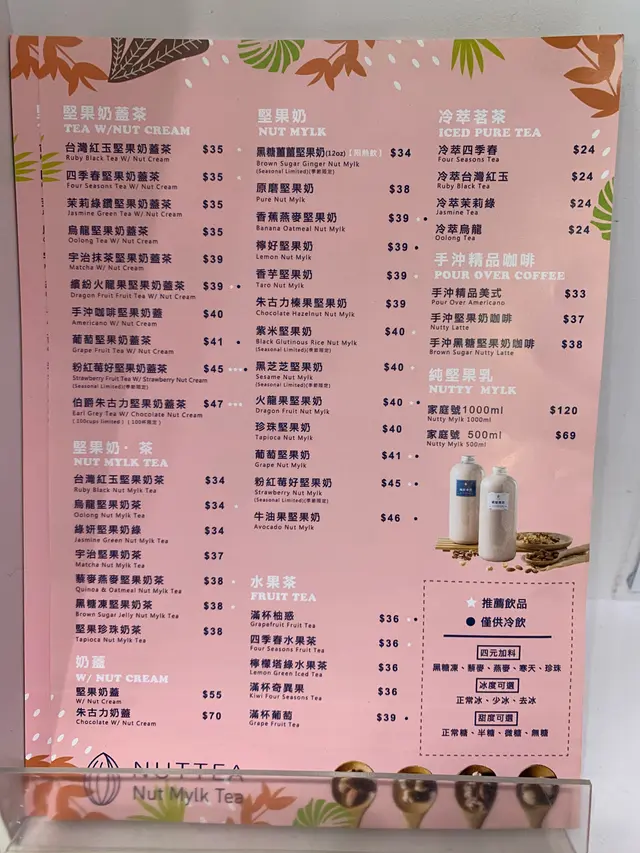 堅果奶蓋茶
TEA W/NUT CREAM
台灣紅玉堅果奶蓋茶 $35
Ruby Black Tea W/ Nut Cream
四季春堅果奶蓋茶 $35
Four Seasons Tea W/ Nut Cream
茉莉綠鑽堅果奶蓋茶 $35
Jasmine Green Tea W/ Nut Cream
烏龍堅果奶蓋茶 $35
Oolong Tea W/ Nut Cream
宇治抹茶堅果奶蓋茶 $39
Matcha W/ Nut Cream
繽紛火龍果堅果奶蓋茶 $39
Dragon Fruit Fruit Tea W/ Nut Cream
手沖咖啡堅果奶蓋 $40
Americano W/ Nut Cream
葡萄堅果奶蓋茶 $41
Grape Fruit Tea W/ Nut Cream
粉紅莓好堅果奶蓋茶 $45
Strawberry Fruit Tea W/ Strawberry Nut Cream
(Seasonal Limited)(季節限定)
伯爵朱古力堅果奶蓋茶 $47
Earl Grey Tea W/ Chocolate Nut Cream
(100cups limited) (100杯限定)
堅果奶·茶
NUT MYLK TEA
台灣紅玉堅果奶茶 $34
Ruby Black Nut Mylk Tea
烏龍堅果奶茶 $34
Oolong Nut Mylk Tea
綠妍堅果奶綠 $34
Jasmine Green Nut Mylk Tea
宇治堅果奶茶 $37
Matcha Nut Mylk Tea
藜麥燕麥堅果奶茶 $38
Quinoa & Oatmeal Nut Mylk Tea
黑糖凍堅果奶茶 $38
Brown Sugar Jelly Nut Mylk Tea
堅果珍珠奶茶 $38
Tapioca Nut Mylk Tea
奶蓋
W/ NUT CREAM
堅果奶蓋 $55
W/ Nut Cream
朱古力奶蓋 $70
Chocolate W/ Nut Cream
堅果奶
NUT MYLK
黑糖薑薑堅果奶(12oz) $34
Brown Sugar Ginger Nut Mylk
(Seasonal Limited)(季節限定)
原磨堅果奶 $38
Pure Nut Mylk
香蕉燕麥堅果奶 $39
Banana Oatmeal Nut Mylk
檸好堅果奶 $39
Lemon Nut Mylk
香芋堅果奶 $39
Taro Nut Mylk
朱古力榛果堅果奶 $39
Chocolate Hazelnut Nut Mylk
紫米堅果奶 $40
Black Glutinous Rice Nut Mylk
(Seasonal Limited)(季節限定)
黑芝芝堅果奶 $40
Sesame Nut Mylk
(Seasonal Limited)(季節限定)
火龍果堅果奶 $40
Dragon Fruit Nut Mylk
珍珠堅果奶 $40
Tapioca Nut Mylk
葡萄堅果奶 $41
Grape Nut Mylk
粉紅莓好堅果奶 $45
Strawberry Nut Mylk
(Seasonal Limited)(季節限定)
牛油果堅果奶 $46
Avocado Nut Mylk
水果茶
FRUIT TEA
滿杯柚惑 $36
Grapefruit Fruit Tea
四季春水果茶 $36
Four Seasons Fruit Tea
檸檬塔綠水果茶 $36
Lemon Green Iced Tea
滿杯奇異果 $36
Kiwi Four Seasons Tea
滿杯葡萄 $39
Grape Fruit Tea
冷萃茗茶
ICED PURE TEA
冷萃四季春 $24
Four Seasons Tea
冷萃台灣紅玉 $24
Ruby Black Tea
冷萃茉莉綠 $24
Jasmine Tea
冷萃烏龍 $24
Oolong Tea
手沖精品咖啡
POUR OVER COFFEE
手沖精品美式 $33
Pour Over Americano
手沖堅果奶咖啡 $37
Nutty Latte
手沖黑糖堅果奶咖啡 $38
Brown Sugar Nutty Latte
純堅果乳
NUTTY MYLK
家庭號1000ml $120
Nutty Mylk 1000ml
家庭號 500ml $69
Nutty Mylk 500ml
推薦飲品
僅供冷飲
四元加料
黑糖凍、藜麥、燕麥、寒天、珍珠
冰度可選
正常冰、少冰、去冰
甜度可選
正常糖、半糖、微糖、無糖
NUTTEA
Nut Mylk Tea